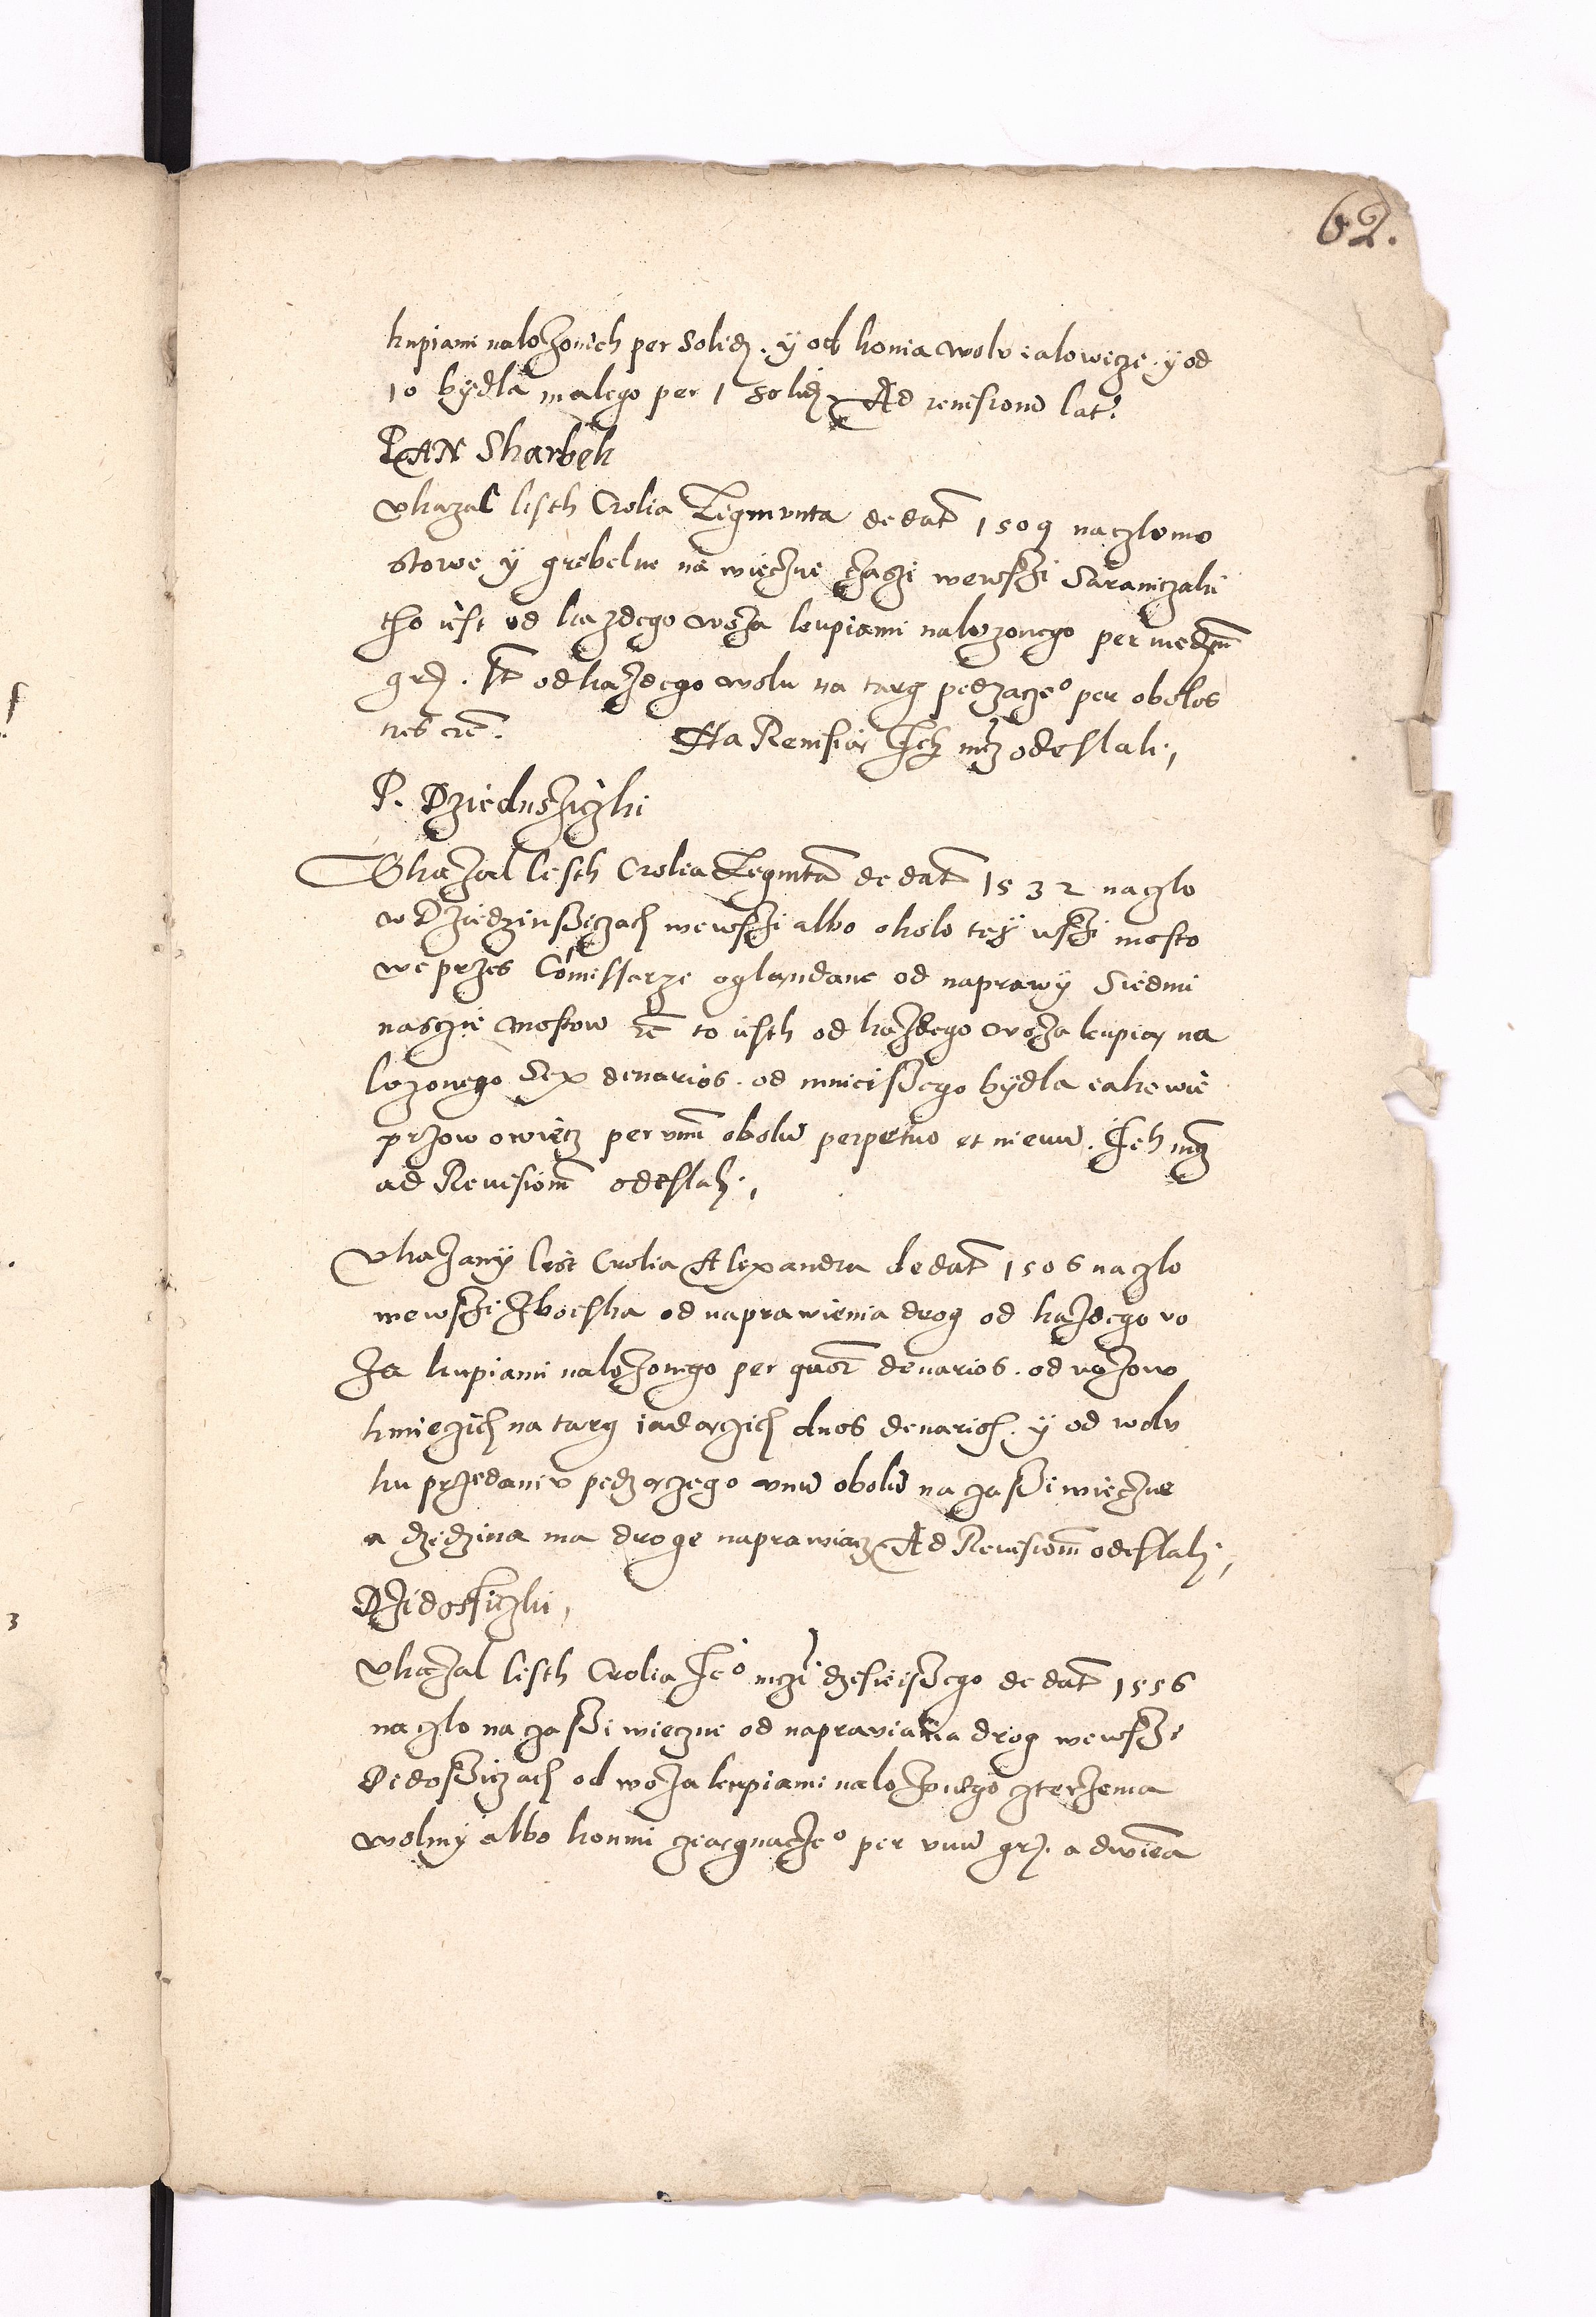 62.
kupiami nalozonich per Solid. y od konia wolu ialowicze. y od
10 bydla malego per 1 solid. Ad revisionē lat.
PAN Skarbek
Vkazal listh Crolia Zigmunta de dat 1509 na czlo mo
stowe y grebelne na wieczne czaszi wewsszi Saraniczaki
tho iest od kazdego woza kupiami nalozonego per mediū
gr. It od kazdego wolu na targ pedzacze° per obolos
tres etc. Na Rewisią Ich mcz odeslali,
P. Dziedusziczki
Vkazal listh Crolia Zigmta de dat 1532 na czlo
w Dziedziusziczach wewsszi albo okolo tey wsszi mosto
we przes Comissarze oglandane od naprawy Siedmi
naszczie mostow etc to iesth od kazdego woza kupią na
lozonego Sex denarios. od mnieiszego bydla iako wie
przow owiecz per unū obolū perpetuo et in evū. Ich mcz
ad Revisionē odeslali,
Vkazany list Crolia Alexandra de dat 1506 na czlo
wewsszi Zboiska od naprawienia drog od kazdego vo
za kupiami nalozonego per quor denarios. od vozow
kmieczich na targ iadączich duos denarios. y od wolu
ku przedaniu pedzączego unū obolū na czaszi wieczne
a dzedzina ma droge naprawiacz Ad Revisionē odeslali,
Dzidosziczki,
Vkazal listh Crolia Je° mczi dzesieiszego de dat 1556
na czlo na czaszi wieczne od napraviania drog wewsszi
Didosziczach od woza kupiami nalozonego czterzema
wolmy albo konmi cziągnącze° per unū gr. a dwiema